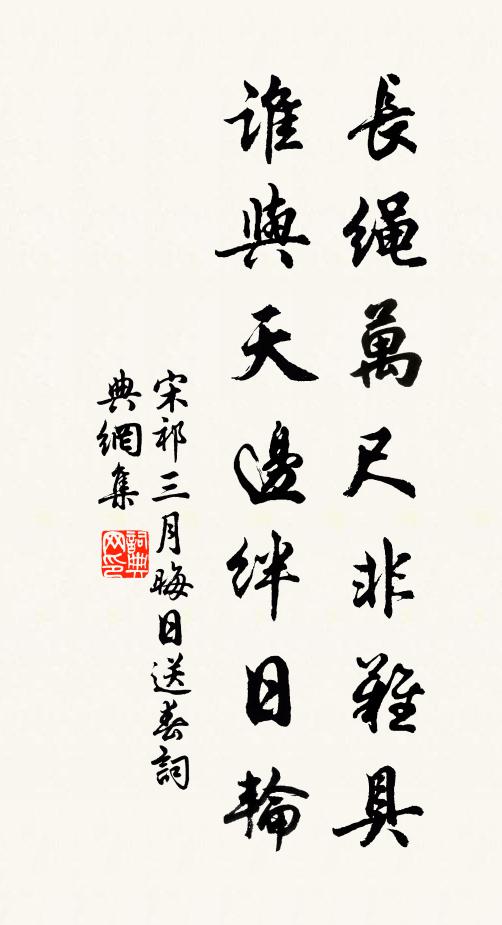 長繩萬尺非難具
誰與天邊絆日輪
宋祁三月晦日送春詞
典網集
詞典网印